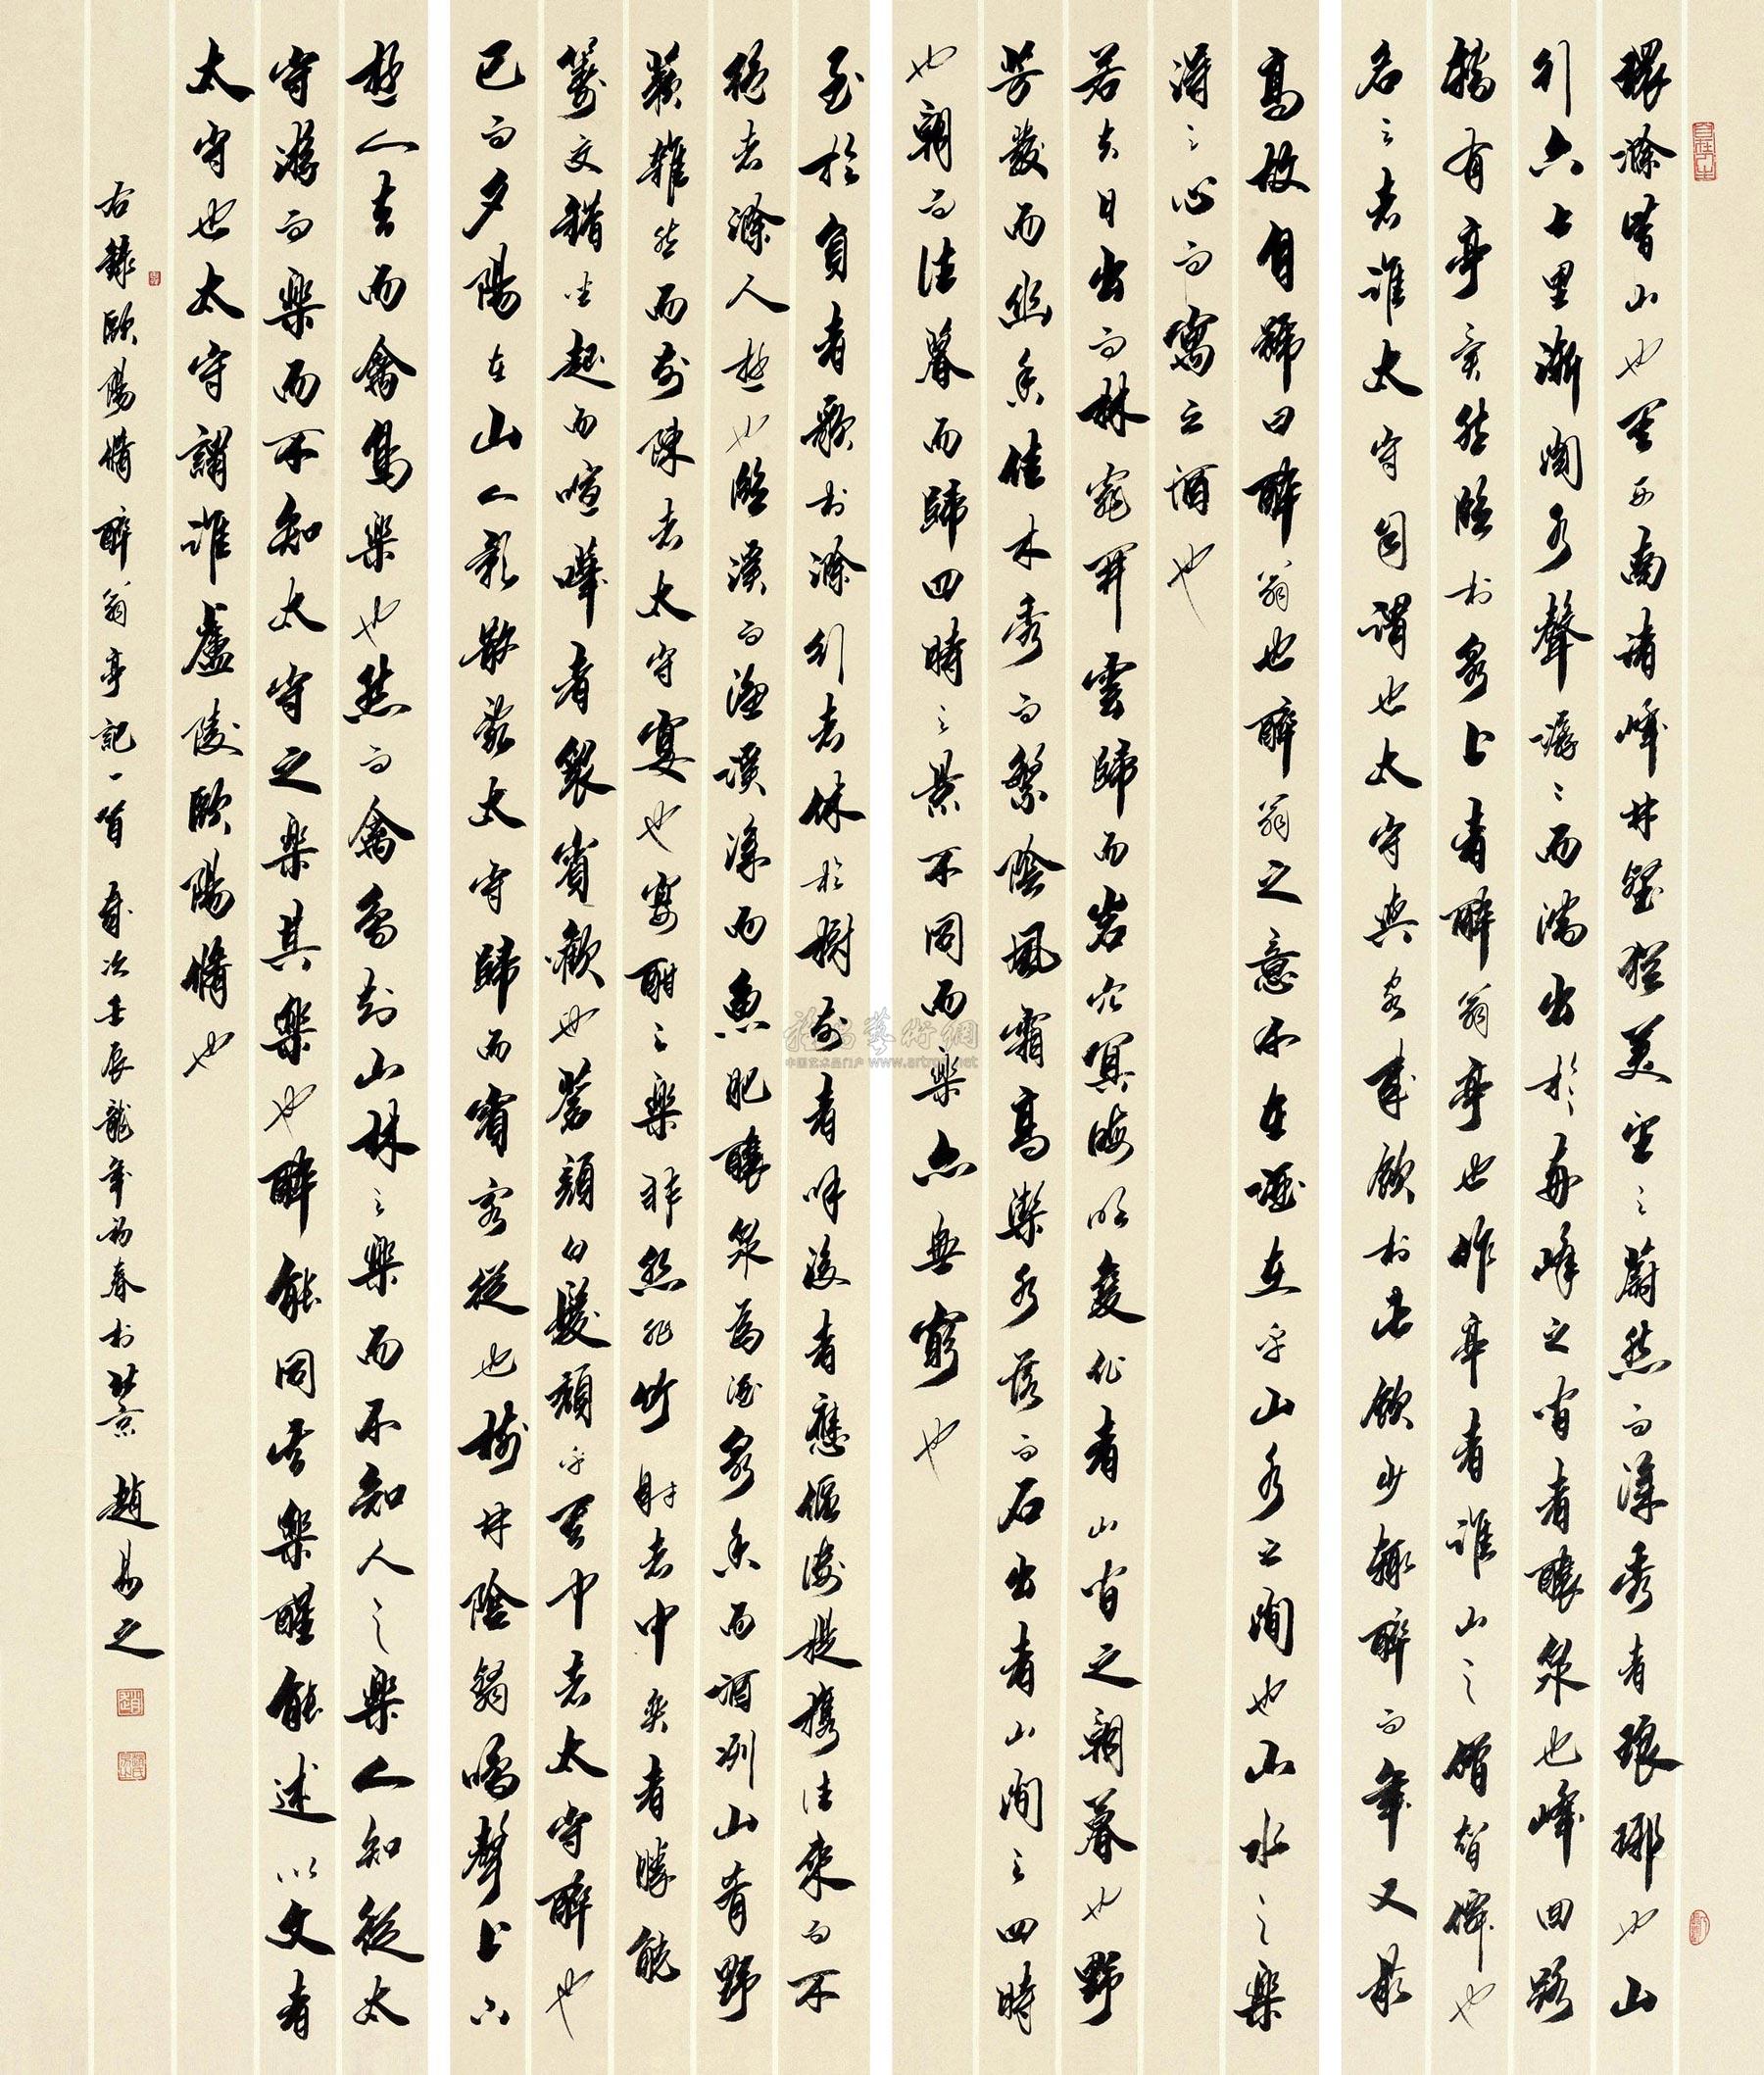 環滁皆山也其西南諸峰林壑猶美望之蔚然而深秀者琅琊也山
行六七里漸聞水聲潺々而瀉出於兩峰之間者釀泉也峰回路
轉有亭翼然臨於泉上者醉翁亭也作亭者誰山之僧智僊也
名之者誰太守自謂也太守與客來飲於此飲少輒醉而年又最
高故自號曰醉翁也醉翁之意不在酒在乎山水之間也山水之樂
得之心而寓之酒也
若夫日出而林霏開雲歸而岩穴冥晦明變化者山間之朝暮也野
芳發而幽香佳木秀而繁陰風霜高潔水落而石出者山間之四時
也朝而往暮而歸四時之景不同而樂亦無窮也
至於負者歌於滁行者休於樹前者呼後者應傴僂提攜往來而不
絕者滁人遊也臨溪而漁溪深而魚肥釀泉為酒泉香而酒洌山肴野
蔌雜然而前陳者太守宴也宴酣之樂非絲非竹射者中弈者勝觥
籌交錯坐起而喧嘩者眾賓歡也蒼顏白髮頹乎其中者太守醉也
已而夕陽在山人影散亂太守歸而賓客從也樹林陰翳鳴聲上下
遊人去而禽鳥樂也然而禽鳥知山林之樂而不知人之樂人知從太
守游而樂而不知太守之樂其樂也醉能同其樂醒能述以文者
太守也太守謂誰廬陵歐陽脩也
右錄歐陽脩醉翁亭記一首 歲次壬辰龍年初春於北京 趙易之
雅昌藝術網
中国艺术品门户 www.artron.net